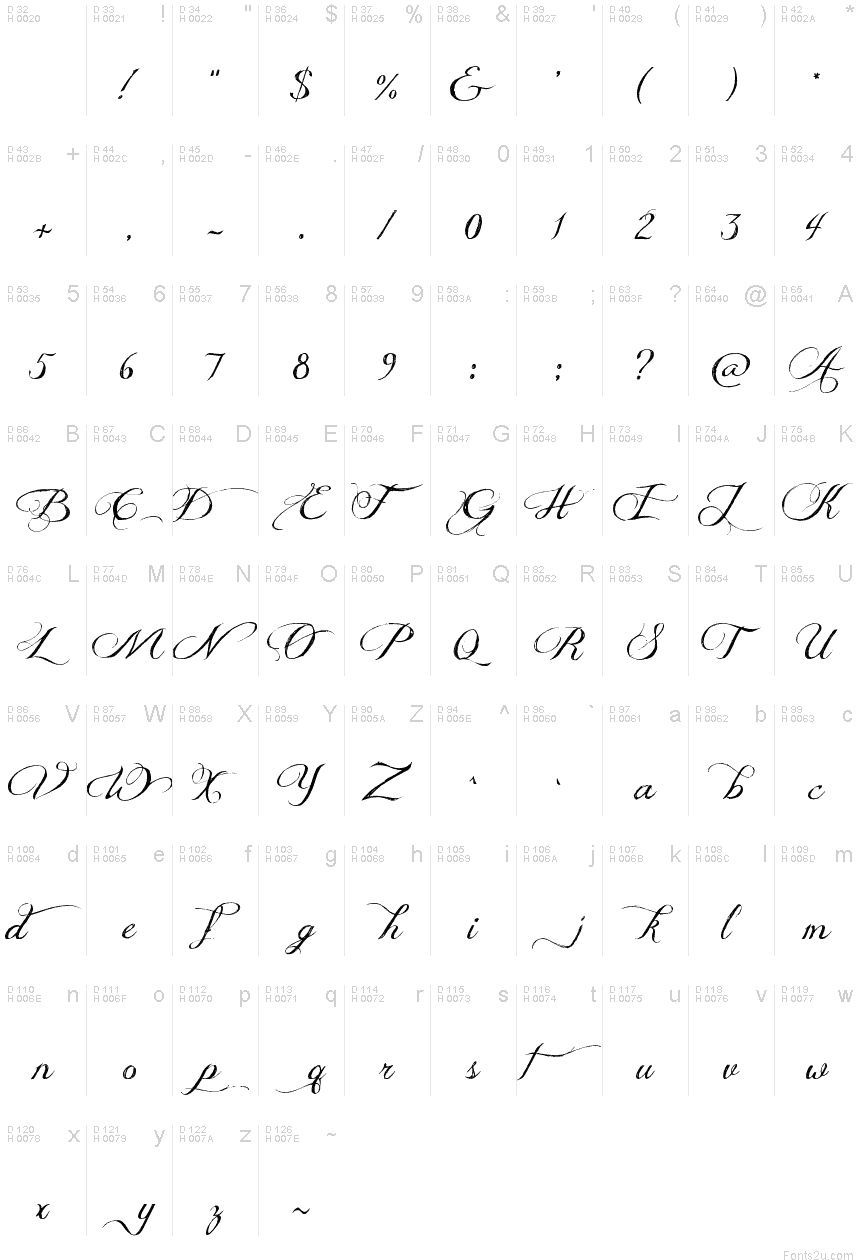 D 32 H 0020 D 33 H 0021 ! D 34 H 0022 " D 36 H 0024 $ D 37 H 0025 % D 38 H 0026 & D 39 H 0027 ' D 40 H 0028 ( D 41 H 0029 ) D 42 H 002A *
! " $ % & ' ( ) *
D 43 H 002B + D 44 H 002C , D 45 H 002D - D 46 H 002E . D 47 H 002F / D 48 H 0030 0 D 49 H 0031 1 D 50 H 0032 2 D 51 H 0033 3 D 52 H 0034 4
+ , - . / 0 1 2 3 4
D 53 H 0035 5 D 54 H 0036 6 D 55 H 0037 7 D 56 H 0038 8 D 57 H 0039 9 D 58 H 003A : D 59 H 003B ; D 63 H 003F ? D 64 H 0040 @ D 65 H 0041 A
5 6 7 8 9 : ; ? @ A
D 66 H 0042 B D 67 H 0043 C D 68 H 0044 D D 69 H 0045 E D 70 H 0046 F D 71 H 0047 G D 72 H 0048 H D 73 H 0049 I D 74 H 004A J D 75 H 004B K
B C D E F G H I J K
D 76 H 004C L D 77 H 004D M D 78 H 004E N D 79 H 004F O D 80 H 0050 P D 81 H 0051 Q D 82 H 0052 R D 83 H 0053 S D 84 H 0054 T D 85 H 0055 U
L M N O P Q R S T U
D 86 H 0056 V D 87 H 0057 W D 88 H 0058 X D 89 H 0059 Y D 90 H 005A Z D 94 H 005E ^ D 96 H 0060 ` D 97 H 0061 a D 98 H 0062 b D 99 H 0063 c
V W X Y Z ^ ` a b c
D 100 H 0064 d D 101 H 0065 e D 102 H 0066 f D 103 H 0067 g D 104 H 0068 h D 105 H 0069 i D 106 H 006A j D 107 H 006B k D 108 H 006C l D 109 H 006D m
d e f g h i j k l m
D 110 H 006E n D 111 H 006F o D 112 H 0070 p D 113 H 0071 q D 114 H 0072 r D 115 H 0073 s D 116 H 0074 t D 117 H 0075 u D 118 H 0076 v D 119 H 0077 w
n o p q r s t u v w
D 120 H 0078 x D 121 H 0079 y D 122 H 007A z D 126 H 007E ~
x y z ~
Fonts2u.com